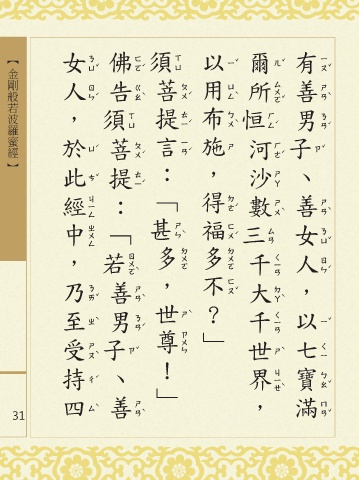 有善男子、善女人，以七寶滿
爾所恒河沙數三千大千世界，
以用布施，得福多不？」
須菩提言：「甚多，世尊！」
佛告須菩提：「若善男子、善
女人，於此經中，乃至受持四
【金剛般若波羅蜜經】
31